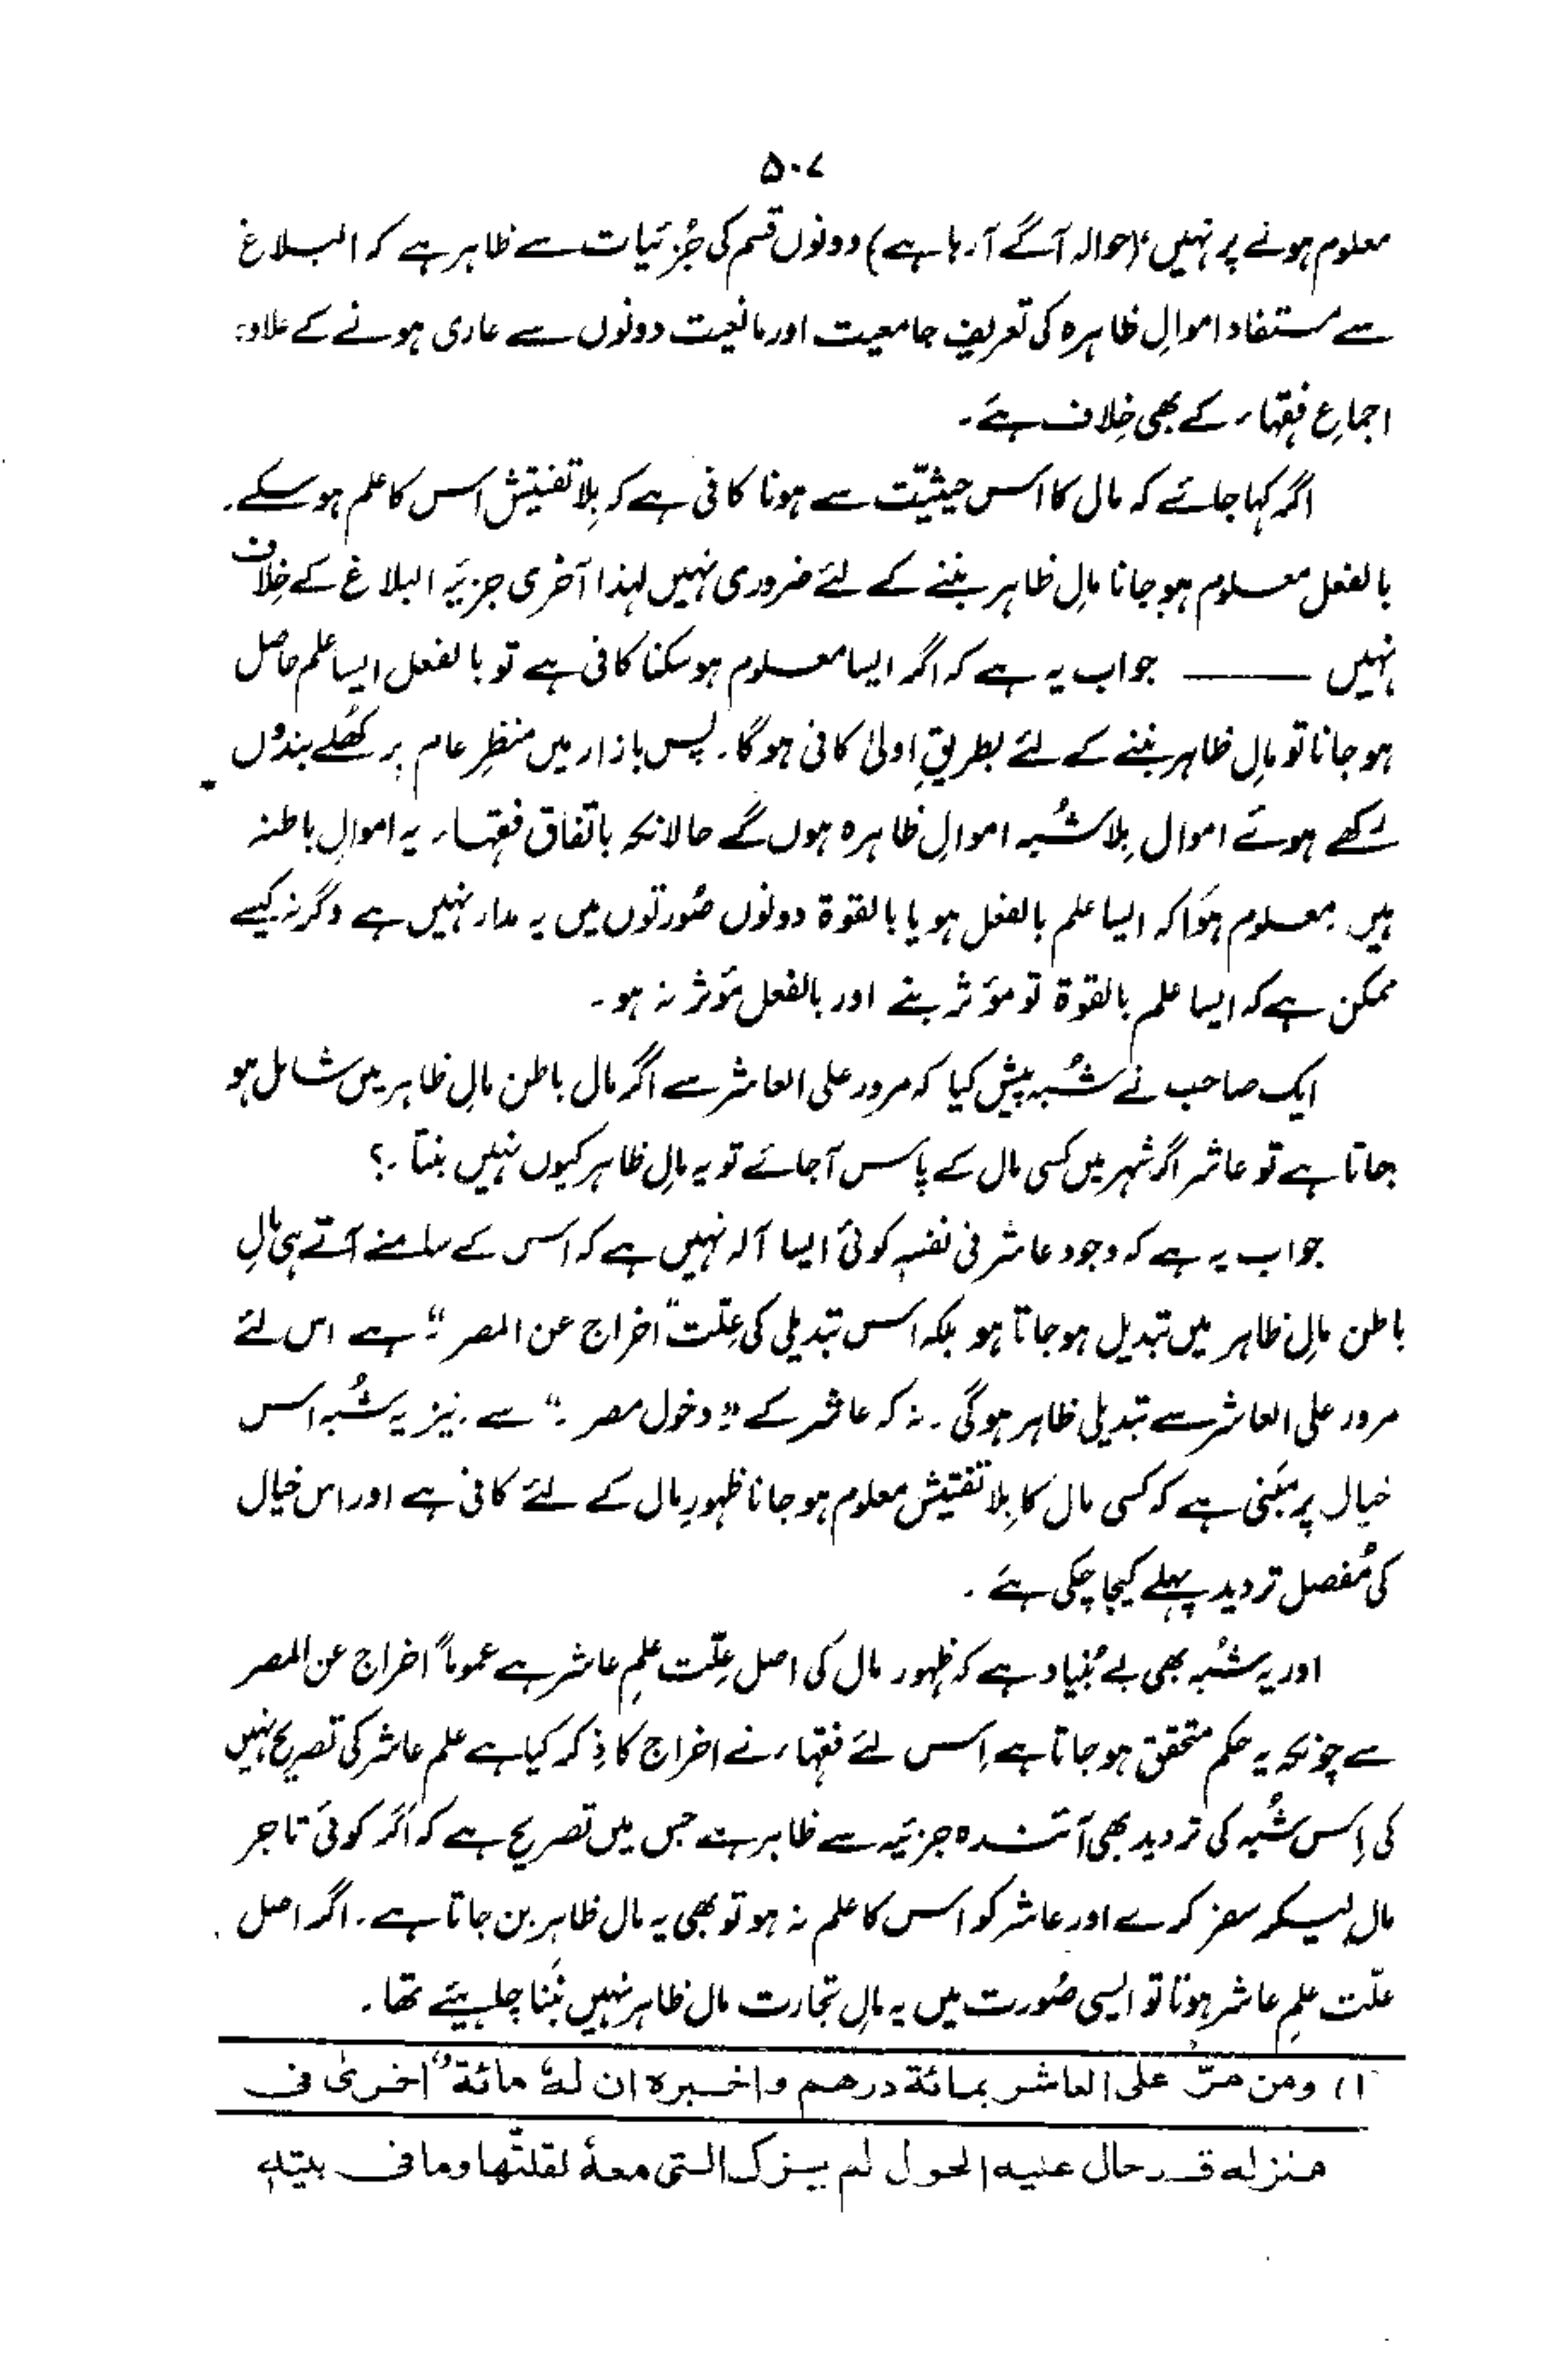 ۵۰۷
معلوم ہونے پر نہیں (حوالہ آگے آ رہا ہے) دونوں قسم کی جُزئیات سے ظاہر ہے کہ البلاغ
سے مستفاد اموالِ ظاہرہ کی تعریف جامعیت اور مانعیت دونوں سے عاری ہونے کے علاوہ
اجماعِ فقہاء کے بھی خِلاف ہے۔
اگر کہا جائے کہ مال کا اس حیثیّت سے ہونا کافی ہے کہ بِلا تفتیش اس کا علم ہو سکے۔
بالفعل معلوم ہو جانا مالِ ظاہر بننے کے لئے ضروری نہیں لہذا آخری جزیہ البلاغ کے خِلاف
نہیں ——— جواب یہ ہے کہ اگر ایسا معلوم ہو سکنا کافی ہے تو بالفعل ایسا علم حاصل
ہو جانا تو مالِ ظاہر بننے کے لئے بطریقِ اولیٰ کافی ہو گا۔ پس بازار میں منظرِ عام پر کھُلے بندوں
رکھے ہوئے اموال بِلا شُبہ اموالِ ظاہرہ ہوں گے حالانکہ باتفاق فقہاء یہ اموالِ باطنہ
ہیں۔ معلوم ہوَا کہ ایسا علم بالفعل ہو یا بالقوۃ دونوں صُورتوں میں یہ مدار نہیں ہے وگرنہ کیسے
ممکن ہے کہ ایسا علم بالقوۃ تو مؤثر بنے اور بالفعل مؤثر نہ ہو۔
ایک صاحب نے شُبہ پیش کیا کہ مرور علی العاشر سے اگر مال باطن مالِ ظاہر میں شامل ہو
جاتا ہے تو عاشر اگر شہر میں کسی مال کے پاس آ جائے تو یہ مالِ ظاہر کیوں نہیں بنتا۔؟
جواب یہ ہے کہ وجود عاشر فی نفسہٖ کوئی ایسا آلہ نہیں ہے کہ اس کے سامنے آتے ہی مالِ
باطن مالِ ظاہر میں تبدیل ہو جاتا ہو بلکہ اس تبدیلی کی عِلّت "اخراج عن المصر" ہے اس لئے
مرور علی العاشر سے تبدیلی ظاہر ہو گی۔ نہ کہ عاشر کے "دخول مصر۔" سے۔ نیز یہ شُبہ اس
خیال پر مَبنی ہے کہ کسی مال کا بِلا تفتیش معلوم ہو جانا ظہورِ مال کے لئے کافی ہے اور اس خیال
کی مُفصل تردید پہلے کیجا چکی ہے۔
اور یہ شُبہ بھی بے بُنیاد ہے کہ ظہور مال کی اصل عِلّت علمِ عاشر ہے عموماً اخراج عن المصر
سے چونکہ یہ حکم متحقق ہو جاتا ہے اِس لئے فقہاء نے اخراج کا ذِکر کیا ہے علم عاشر کی تصریح نہیں
کی اِس شُبہ کی تردید بھی آئندہ جزئیہ سے ظاہر ہے جس میں تصریح ہے کہ اگر کوئی تاجر
مال لیکر سفر کرے اور عاشر کو اس کا علم نہ ہو تو بھی یہ مال ظاہر بن جاتا ہے۔ اگر اصل
علّت علمِ عاشر ہوتا تو ایسی صُورت میں یہ مالِ تجارت مال ظاہر نہیں بَننا چاہیئے تھا۔
۱) ومن مرّ علی العاشر بمائة درهم واخبره ان لهٗ مائة اُخریٰ فی
منزله قد حال علیه الحول لم یزک التی معهٗ لقلّتها وما فی بیتهٖ